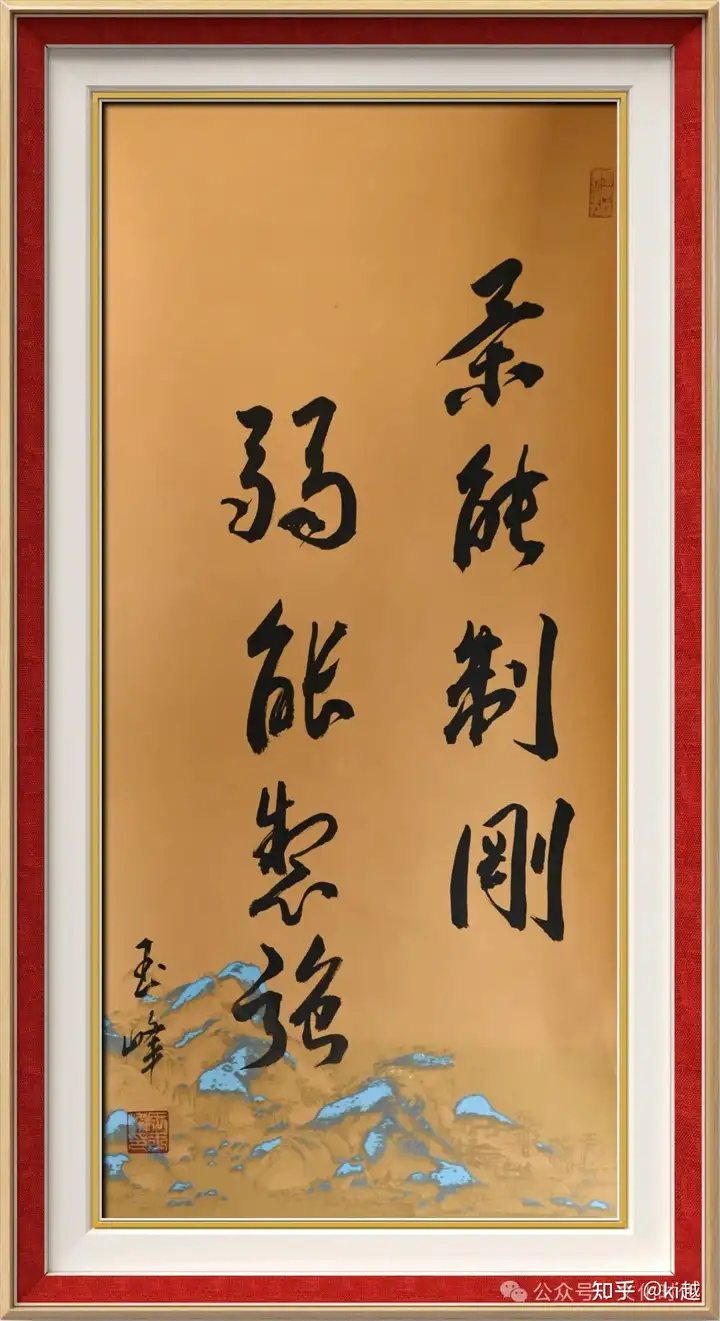 柔能制剛
弱能製強
玉峰
知乎 @ki越
公众号